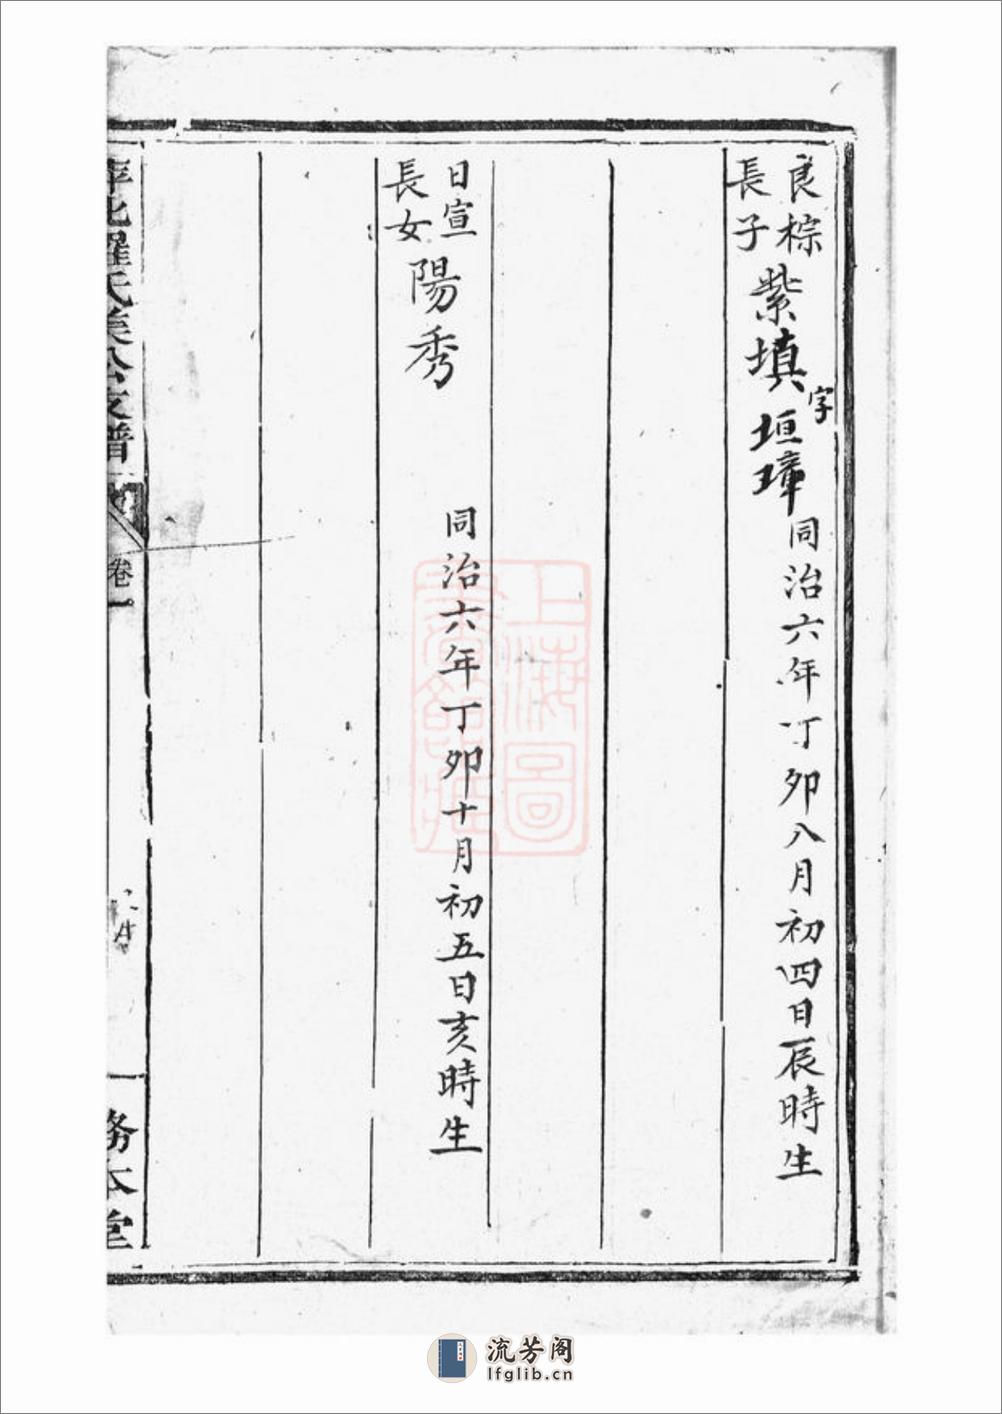 良棕
長子
紫填
字
垣璋
同治六年丁卯八月初四日辰時生
日宣
長女
陽秀
同治六年丁卯十月初五日亥時生
羅氏
公支譜
卷一
務本堂
上海圖
書館藏
流芳阁
lfglib.cn